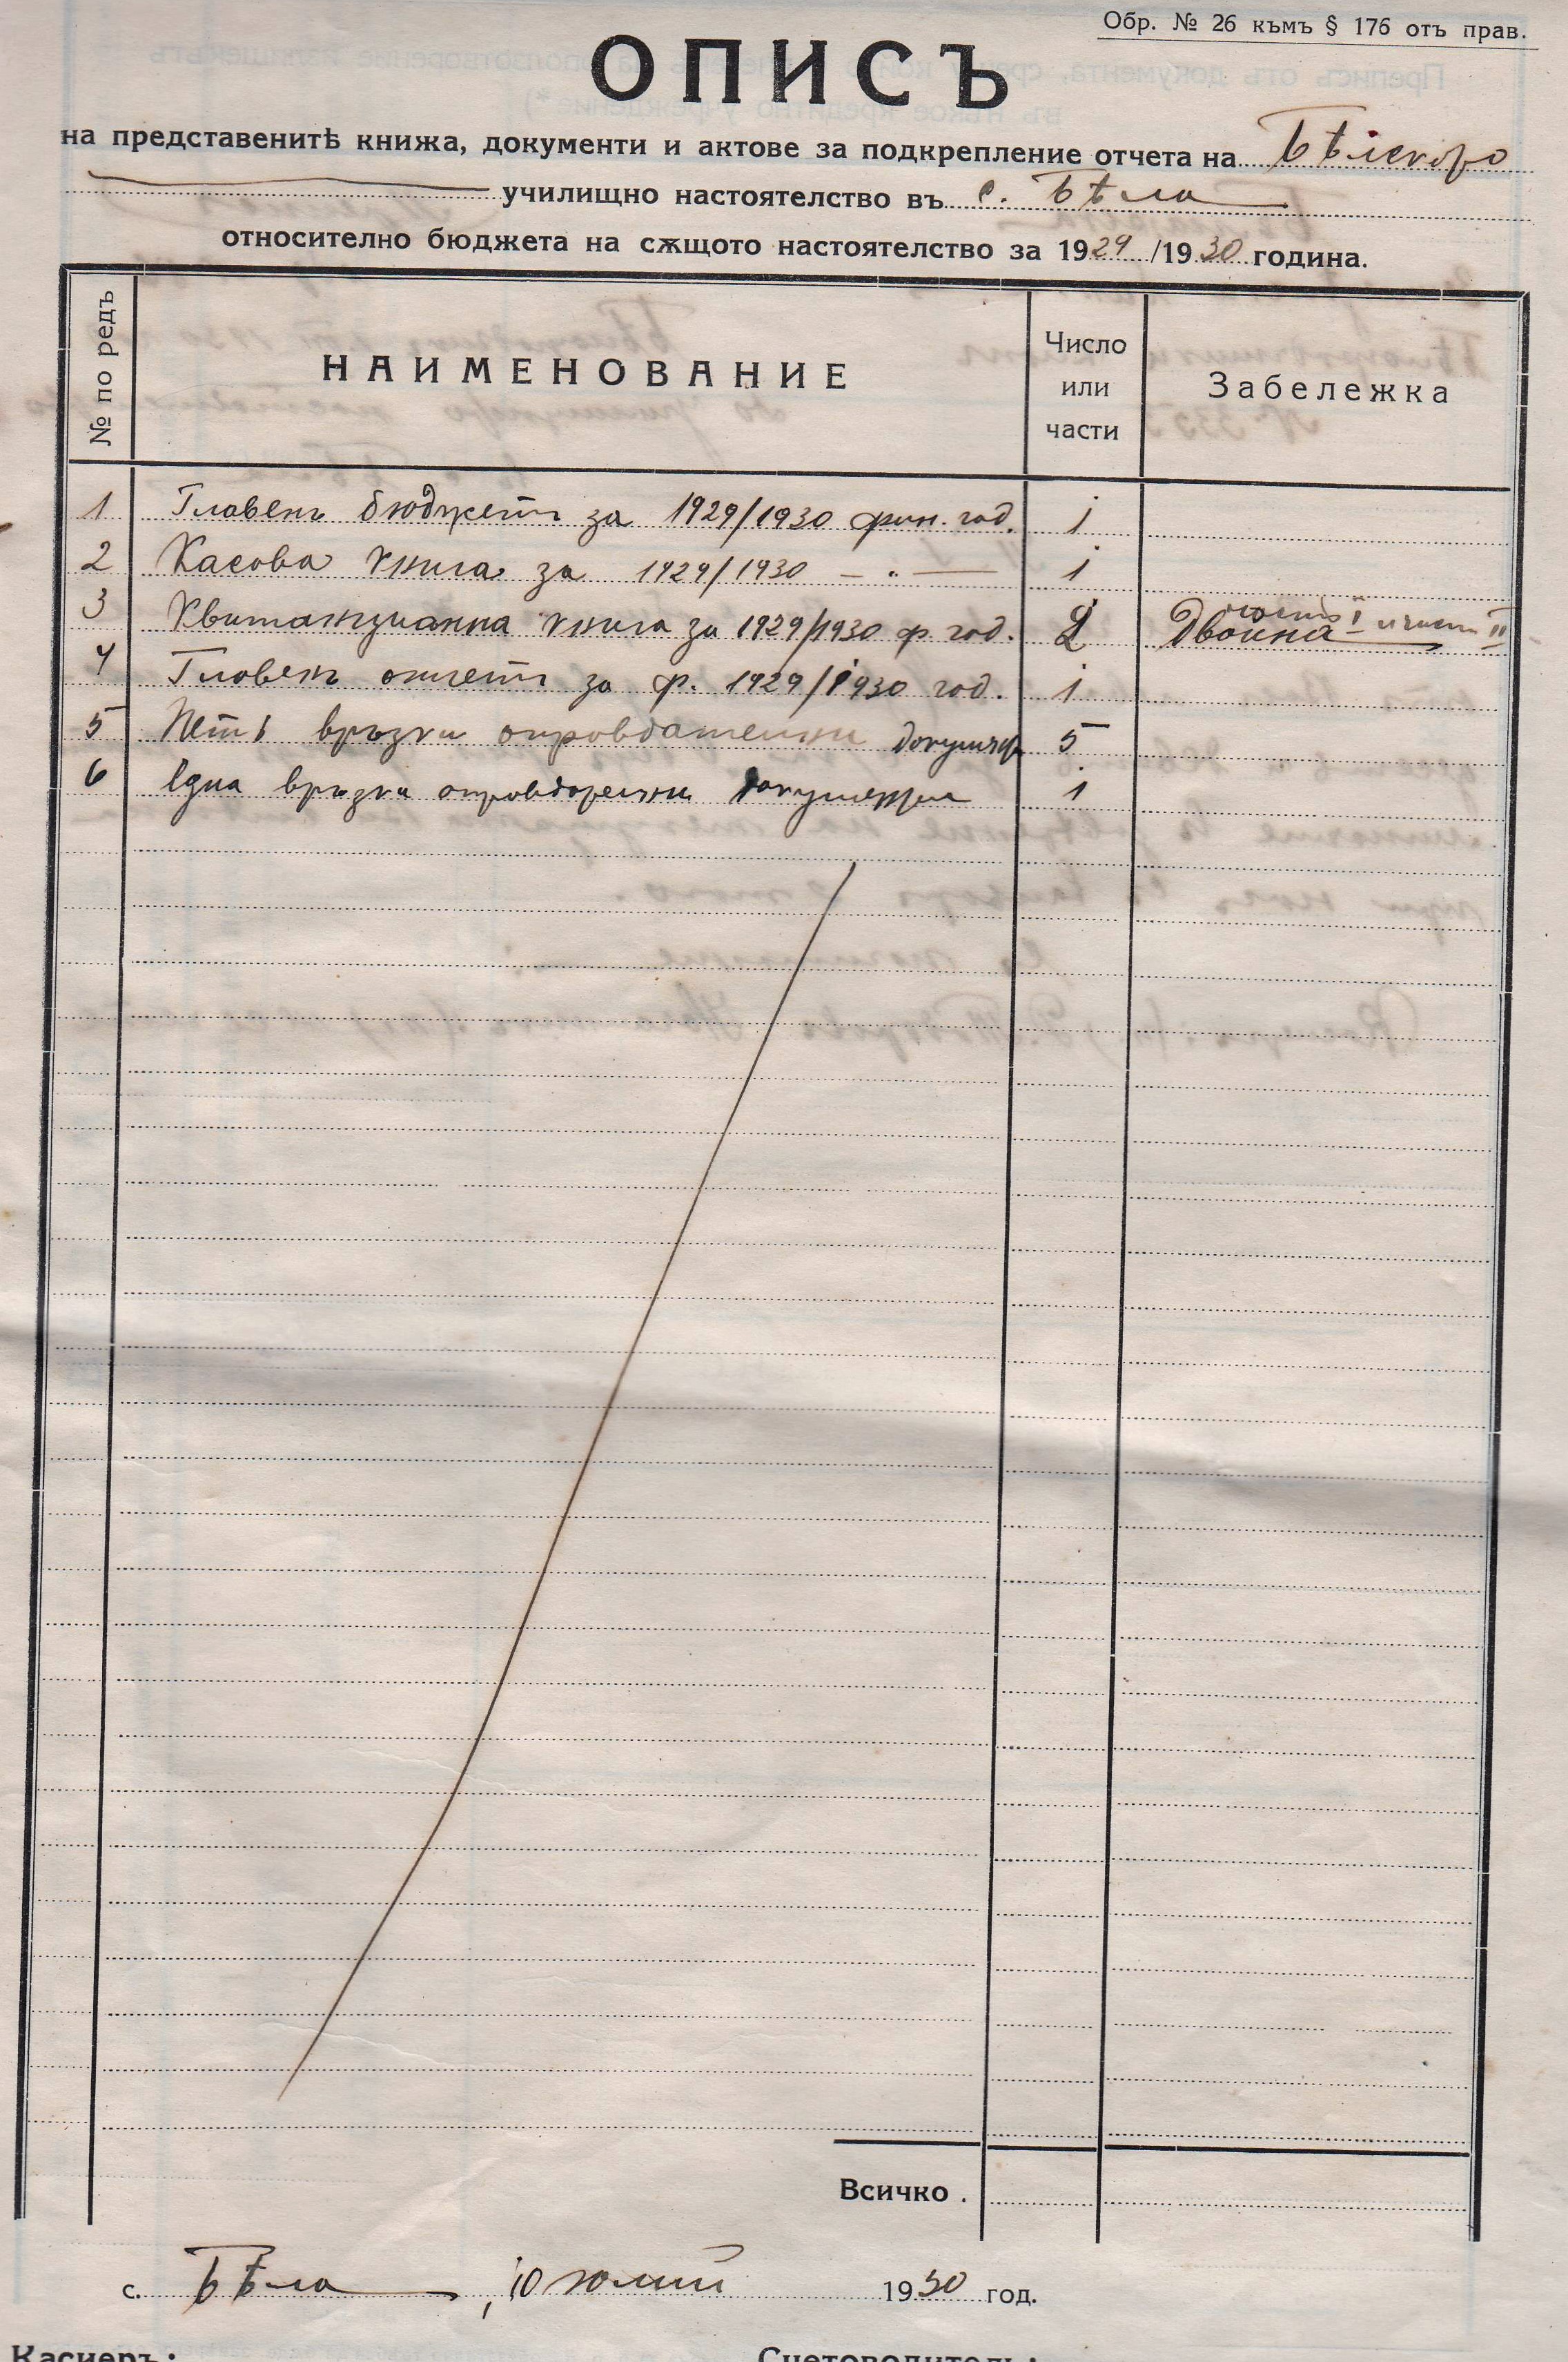 Обр. № 26 къмъ § 176 отъ прав.
ОПИСЪ
на представенитѣ книжа, документи и актове за подкрепление отчета на Бѣлското
училищно настоятелство въ с. Бѣла
относително бюджета на сѫщото настоятелство за 1929/1930 година.
№ по редъ
НАИМЕНОВАНИЕ
Число или части
Забележка
1 Главенъ бюджетъ за 1929/1930 фин. год. 1
2 Касова книга за 1929/1930 — „ — 1
3 Квитанционна книга за 1929/1930 ф. год. 2 Двойна часть I и часть II
4 Главенъ отчетъ за ф. 1929/1930 год. 1
5 Петь връзки оправдателни докумен 5
6 Една връзка оправдателни документи 1
Всичко .
с. Бѣла, 10 юлий 1930 год.
Касиеръ: Счетоводитель: